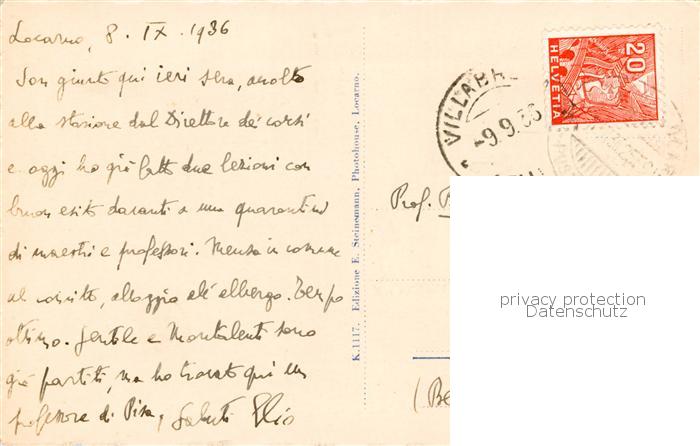 Locarno, 8. IX. 1936
Son giunto qui ieri sera, accolto
alla stazione dal Direttore dei corsi
e oggi ho già fatto due lezioni con
buon esito davanti a una quarantina
di maestri e professori. Mensa in comune
al convitto, alloggio all'albergo. Tempo
ottimo. Gentile e Montalenti sono
già partiti, ma ho trovato qui un
professore di Pisa, Saluti Elio
K.1117. Edizione E. Steinemann, Photohouse, Locarno.
VILLABA
-9.9.36
20
HELVETIA
Prof.
(Be
privacy protection
Datenschutz